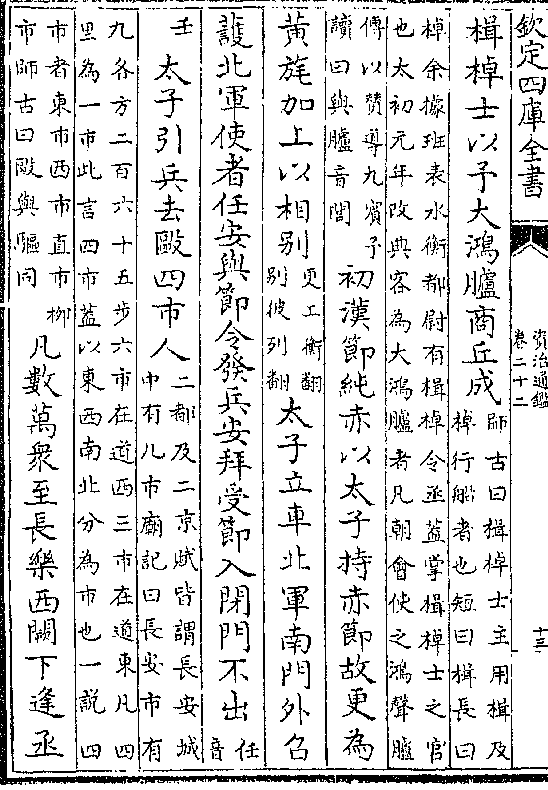 欽定四庫全書
資治通鑑
卷二十二
十三
楫棹士以予大鴻臚商丘成師古曰楫棹士主用楫及
棹行船者也短曰楫長曰
棹余據班表水衡都尉有楫棹令丞蓋掌楫棹士之官
也太初元年改典客為大鴻臚者凡朝會使之鴻聲臚
傳以贊導九賓予
讀曰與臚音閭
初漢節純赤以太子持赤節故更為
黃旄加上以相别
更工衡翻
别彼列翻
太子立車北軍南門外召
護北軍使者任安與節令發兵安拜受節入閉門不出
任
音
壬
太子引兵去敺四市人
二都及二京賦皆謂長安城
中有九市廟記曰長安市有
九各方二百六十五步六市在道西三市在道東凡四
里為一市此言四市蓋以東西南北分為市也一説四
市者東市西市直市柳
市師古曰敺與驅同
凡數萬衆至長樂西闕下逢丞